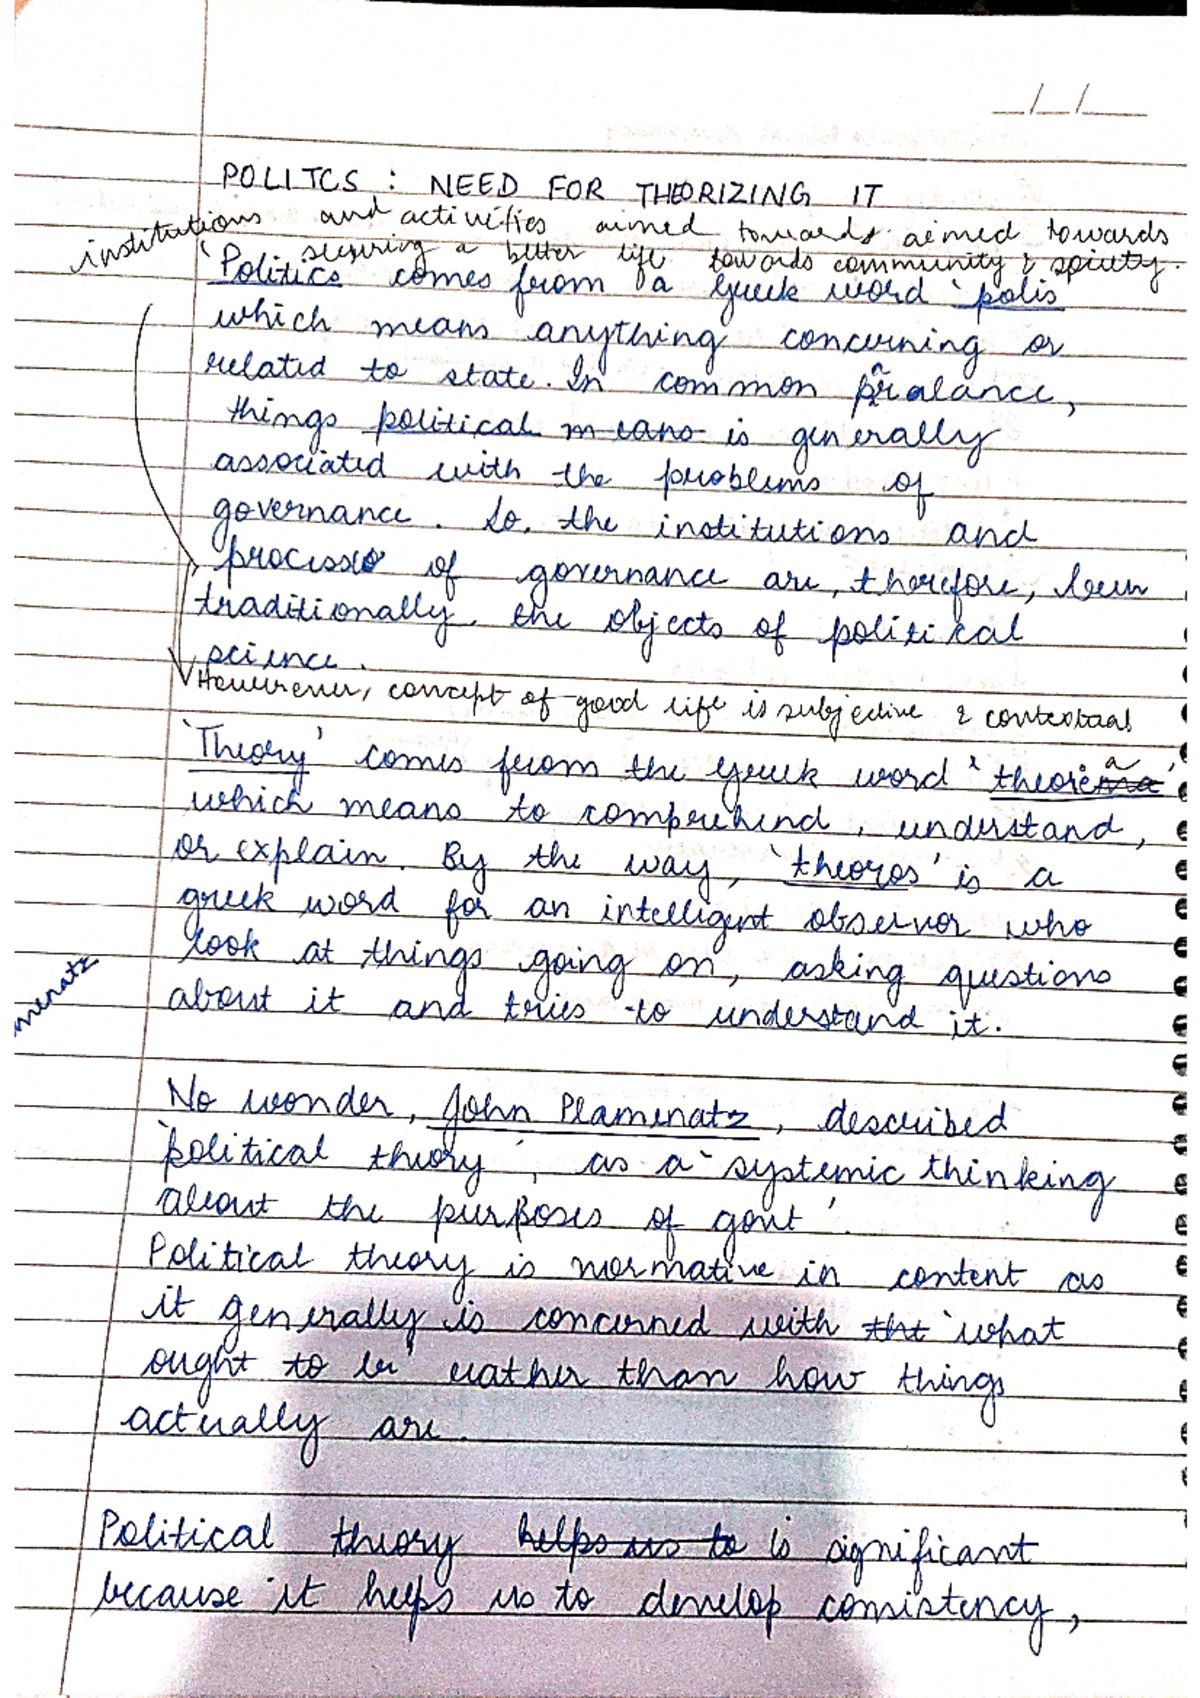 __/__/__
POLITCS : NEED FOR THEORIZING IT
institutions and activities aimed towards aimed towards
securing a better life towards community & society.
'Politics comes from a greek word 'polis
which means anything concerning or
related to state. In common pralance,
things political means is generally
associated with the problems of
governance. So, the institutions and
processes of governance are, therefore, been
traditionally, the objects of political
science.
However, concept of good life is subjective & contextual
'Theory' comes from the greek word 'theoria'
which means to comprehend, understand,
or explain. By the way, 'theoros' is a
greek word for an intelligent observor who
look at things going on, asking questions
about it and tries to understand it.
menatz
No wonder, John Plamenatz, described
'political theory', as a 'systemic thinking
about the purposes of govt'.
Political theory is normative in content as
it generally is concerned with tht 'what
ought to be' rather than how things
actually are.
Political theory helps us to is significant
because it helps us to develop consistency,